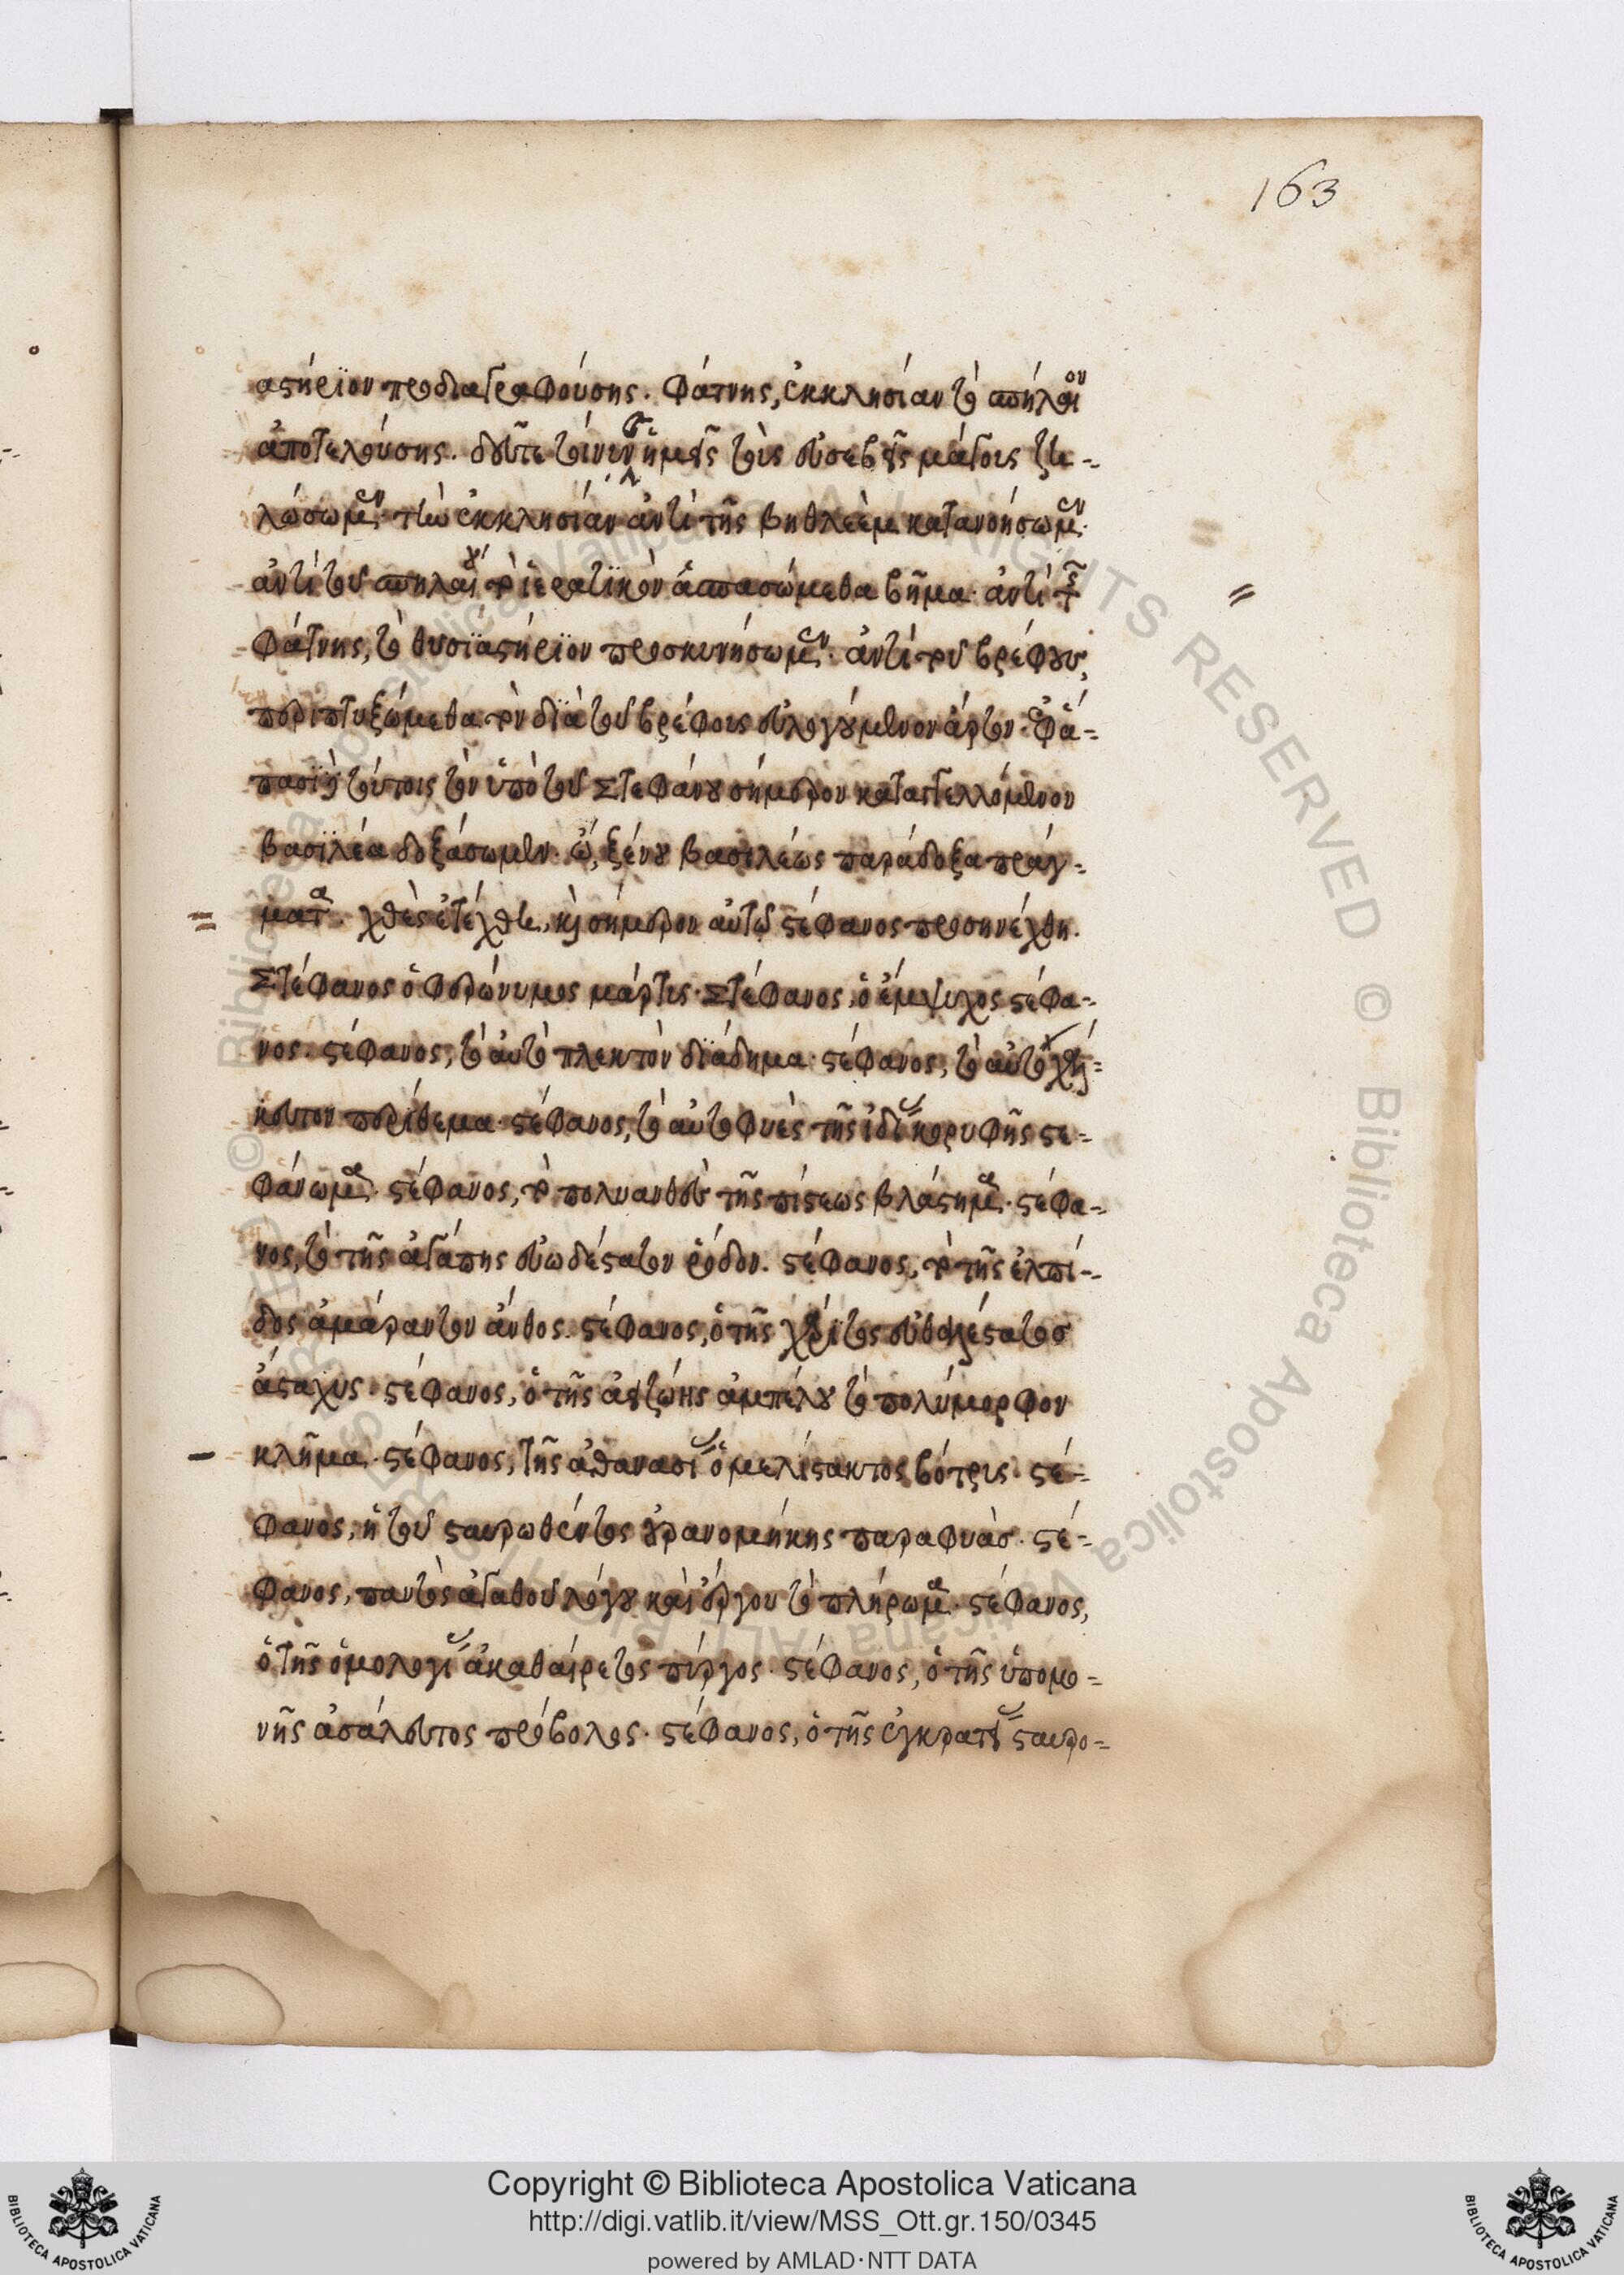 163
αστήριον προδιαγραφούσης. φάτνης, ἐκκλησίαν τὸ σπήλαιον
ἀποτελούσης. δεῦτε τοίνυν καὶ ἡμεῖς τοὺς εὐσεβεῖς μάγους ζη-
λώσωμεν. τὴν ἐκκλησίαν ἀντὶ τῆς βηθλεὲμ κατανοήσωμεν.
ἀντὶ τοῦ σπηλαίου τὸ ἱερατικὸν ἀσπασώμεθα βῆμα. ἀντὶ τῆς
φάτνης, τὸ θυσιαστήριον προσκυνήσωμεν. ἀντὶ τοῦ βρέφους,
περιπτυξώμεθα τὸν διὰ τοῦ βρέφους εὐλογούμενον ἄρτον.
τὸν ὑπὸ τοῦ Στεφάνου σήμερον καταστελλόμενον
βασιλέα δοξάσωμεν. ὤ, ξένου βασιλέως παράδοξα πράγ-
ματα. χθὲς ἐτέχθη, καὶ σήμερον αὐτῷ στέφανος προσηνέχθη.
Στέφανος ὁ φερώνυμος μάρτυς. Στέφανος, ὁ ἔμψυχος στέφα-
νος. στέφανος, τὸ αὐτὸ πλεκτὸν διάδημα. στέφανος, τὸ αὐτοχάλ-
κευτον περίθεμα. στέφανος, τὸ αὐτοφυὲς τῆς ἰδίας κορυφῆς στε-
φάνωμα. στέφανος, τὸ πολυανθὲς τῆς πίστεως βλάστημα. στέφα-
νος, τὸ τῆς ἀγάπης εὐωδέστατον ῥόδον. στέφανος, τὸ τῆς ἐλπί-
δος ἀμάραντον ἄνθος. στέφανος, ὁ τῆς χάριτος εὐθαλέστατος
ἄσταχυς. στέφανος, ὁ τῆς ἀειζώης ἀμπέλου τὸ πολύμορφον
κλῆμα. στέφανος, τῆς ἀθανασίας ὁ μελίστακτος βότρυς. στέ-
φανος, ἡ τοῦ σταυρωθέντος οὐρανομήκης παραφυάς. στέ-
φανος, παντὸς ἀγαθοῦ λόγου καὶ ἔργου τὸ πλήρωμα. στέφανος,
ὁ τῆς ὁμολογίας ἀκαθαίρετος πύργος. στέφανος, ὁ τῆς ὑπομο-
νῆς ἀσάλευτος πρόβολος. στέφανος, ὁ τῆς ἐγκρατείας σταυρο-
Copyright © Biblioteca Apostolica Vaticana
http://digi.vatlib.it/view/MSS_Ott.gr.150/0345
powered by AMLAD·NTT DATA